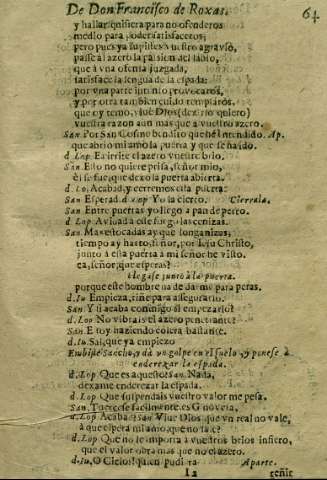 De Don Francisco de Roxas. 64
y hallar quisiera para no ofenderos
medio para poder satisfaceros;
pero pues ya supisteis vuestro agravio,
passe al azero la passion del labio,
que à vna ofensa juzgada,
satisface la lengua de la espada:
por vna parte intento provocaros,
y por otra tambien cuido templaros,
que oy temo, vive Dios (deziros quiero)
vuestra razon aun mas que à vuestro azero.
San. Por San Cosme bendito que lo ha entendido. Ap.
que abriò mi amo la puerta y que se ha ido.
d. Lop. Ea irrite el azero vuestro brio.
San. Esto no quiere prisa, señor mio,
èl se fue, que dexò la puerta abierta.
d. Lo. Acabad, y cerremos esta puerta:
San Esperad. d. Lop Yo la cierro. Cierrala.
San Entre puertas yo llego a pan de perro.
d. Lop Avivad a este fuego las cenizas.
San. Mas estocadas ay que longanizas,
tiempo ay harto, señor, por Iesu Christo,
junto à esta puerta à mi señor he visto.
ea, señor, que esperas?
Llegase junto à la puerta.
porque este hombre ha de darme para peras.
d. Iu Empieza, riñe para assegurarlo.
San. Y si acaba conmigo al empezarlo?
d. Lop No vibrais el azero penetrante?
San. Estoy haziendo colera bastante.
d. Iu. Sal, que ya empiezo
Embiste Sancho, y dà vn golpe en el suelo, y ponese à
enderezar la espada.
d. Lop. Que es aquesso? San. Nada,
dexame enderezar la espada.
d. Lop Que suspendais vuestro valor me pesa.
San. Tuercese facilmente, es Ginovesa,
d. Lop Acabad? San Vive Dios, que vn real no vale,
à que espera mi amo, que no sale?
d. Lop Que no le importa à vuestros brios infiero,
que el valor obra mas que no el azero.
d. Iu, O Cielos! quien pudiera Aparte.
I 2 reñir